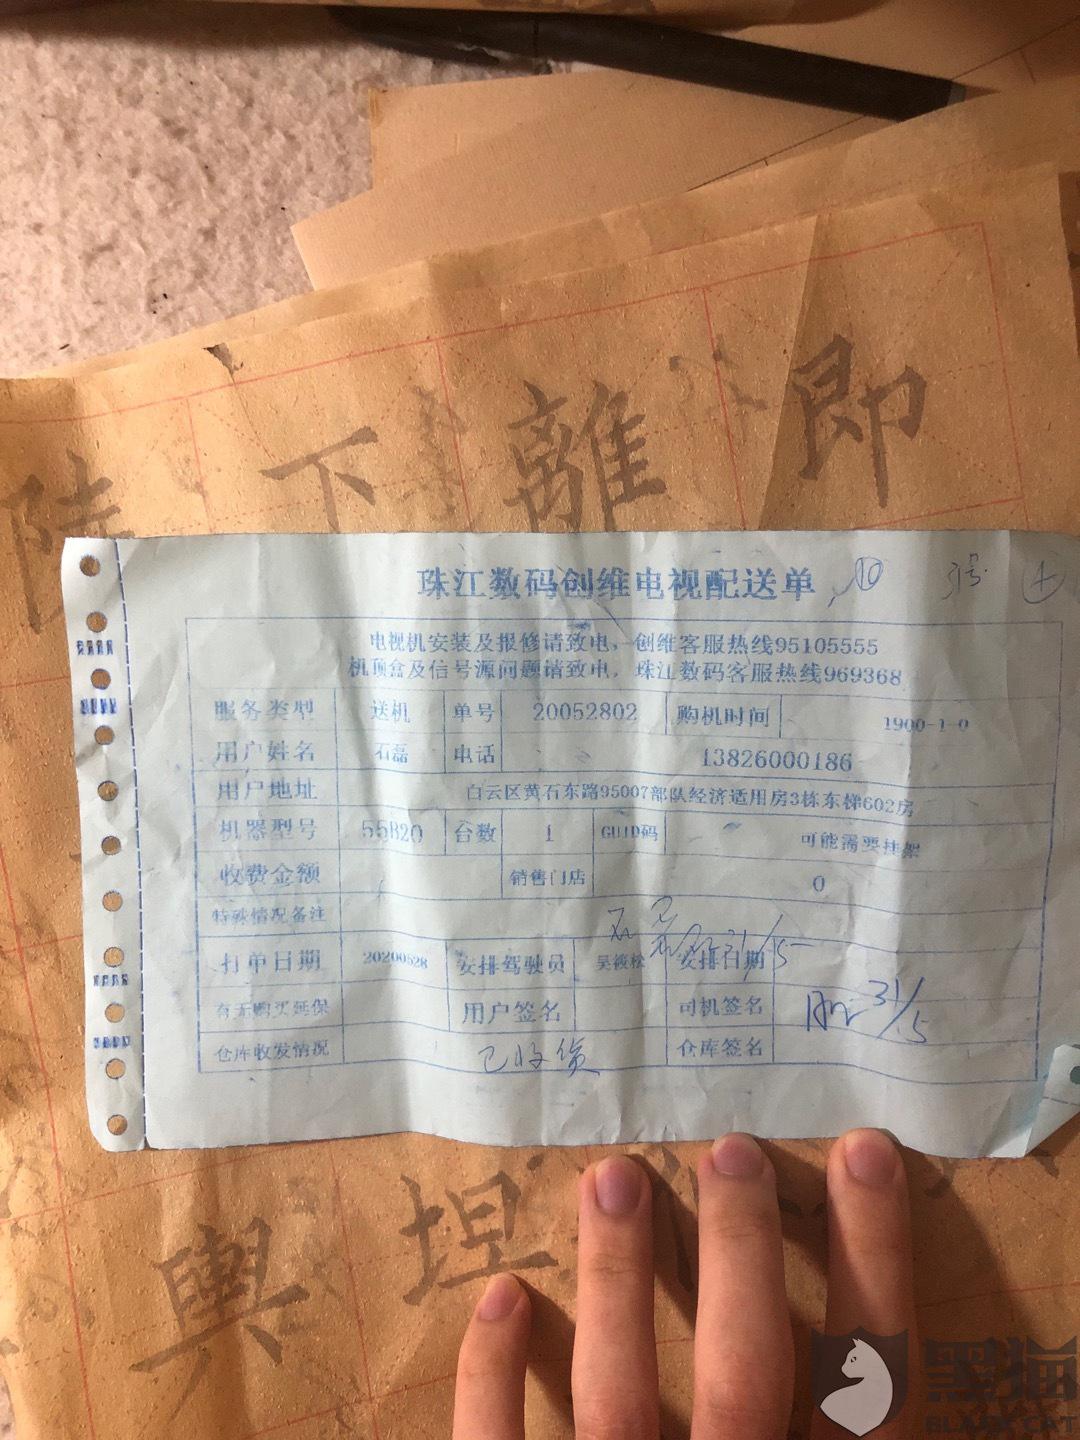 陸下離即
珠江数码创维电视配送单 ⑩ 3号
电视机安装及报修请致电，创维客服热线95105555
机顶盒及信号源问题请致电，珠江数码客服热线969368
服务类型 送机 单号 20052802 购机时间 1900-1-0
用户姓名 石磊 电话 13826000186
用户地址 白云区黄石东路95007部队经济适用房3栋东梯602房
机器型号 55H20 台数 1 GUID码 可能需要挂架
收费金额 销售门店 0
特殊情况备注
石磊 31/5
打单日期 20200528 安排驾驶员 吴筱松 安排日期
有无购买延保 用户签名 司机签名 31/5
仓库收发情况 已收货 仓库签名
輿坦
黑猫
BLACK CAT